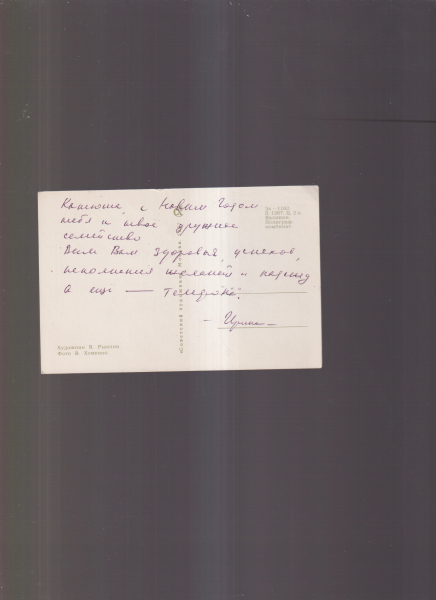 Катюша, с Новым Годом
тебя и твоё дружное
семейство
Всем Вам здоровья, успехов,
исполнения желаний и надежд
А ещё — телефона!
- Ирина -
Художник В.
Фото И.
«Советский художник» Москва